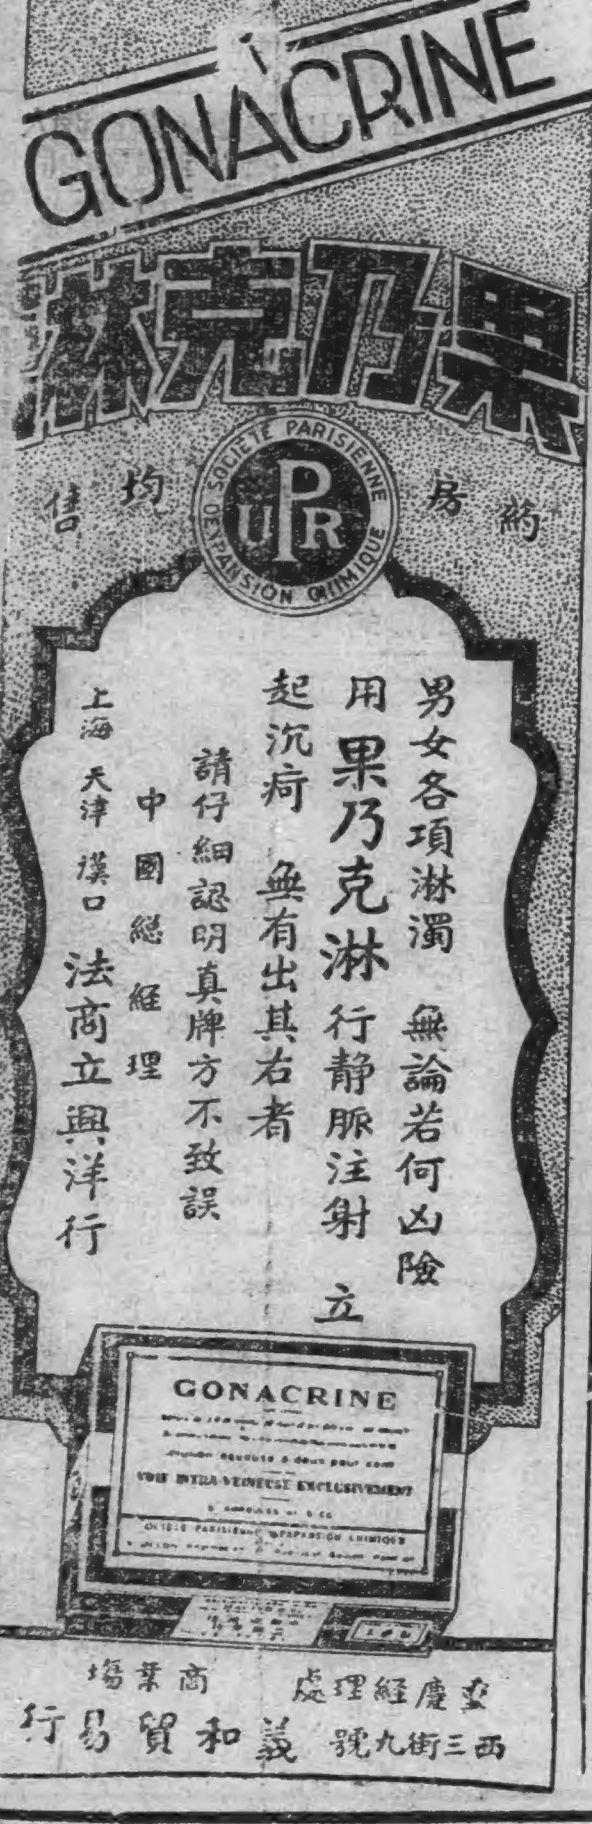 GONACRINE
果乃克淋
藥房均售
SOCIÉTÉ PARISIENNE
D'EXPANSION CHIMIQUE
UPR
男女各項淋濁 無論若何凶險
用果乃克淋行静脈注射 立
起沉疴 無有出其右者
請仔細認明真牌方不致誤
中國總經理
上海 天津 漢口 法商立興洋行
GONACRINE
VOIE INTRA-VEINEUSE EXCLUSIVEMENT
PARISIENNE D'EXPANSION CHIMIQUE
慶經理處 商業場
西三街九號 義和貿易行